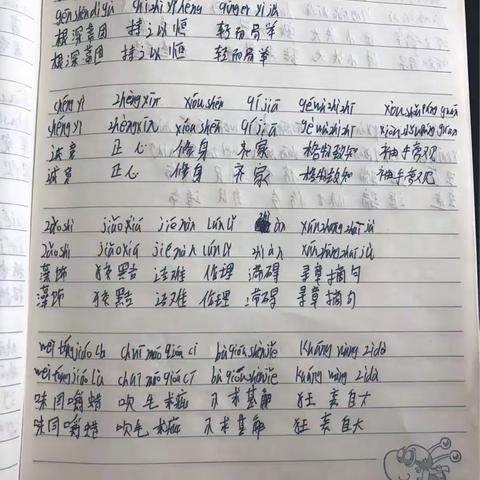 gēn shēn dì gù chí zhī yǐ héng qīng ér yì jǔ
根深蒂固 持之以恒 轻而易举
根深蒂固 持之以恒 轻而易举
chéng yì zhèng xīn xiū shēn qí jiā gé wù zhì zhī xiù shǒu páng guān
chéng yì zhèng xīn xiū shēn qí jiā gé wù zhì zhī xiù shǒu páng guān
诚意 正心 修身 齐家 格物致知 袖手旁观
诚意 正心 修身 齐家 格物致知 袖手旁观
zǎo shì jiǎo xiá jié nàn lún lǐ ài xún zhāng zhāi jù
zǎo shì jiǎo xiá jié nàn lún lǐ zhì ài xún zhāng zhāi jù
藻饰 狡黠 诘难 伦理 滞碍 寻章摘句
藻饰 狡黠 诘难 伦理 滞碍 寻章摘句
wèi tóng jiáo là chuī máo qiú cī bù qiú shèn jiě kuáng wàng zì dà
wèi tóng jiáo là chuī máo qiú cī bù qiú shèn jiě kuáng wàng zì dà
味同嚼蜡 吹毛求疵 不求甚解 狂妄自大
味同嚼蜡 吹毛求疵 不求甚解 狂妄自大